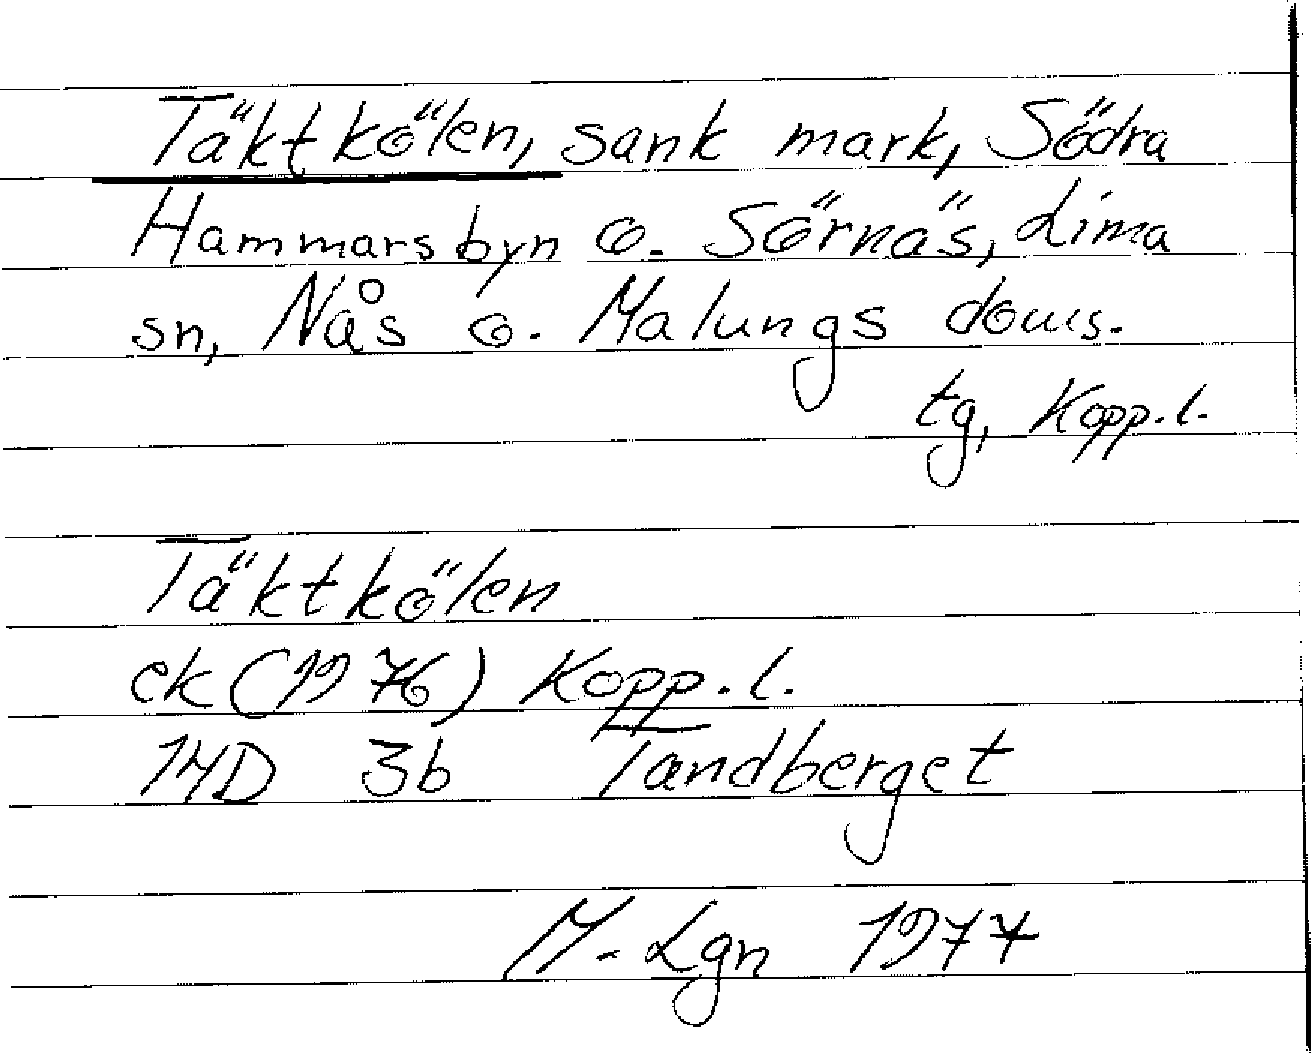 Täktkölen, sank mark, Södra
Hammarsbyn o. Sörnäs, Lima
sn, Nås o. Malungs doms.
tg, Kopp. l.
Täktkölen
ek (1976) Kopp. l.
14D 3b Tandberget
M-Lgn 1977